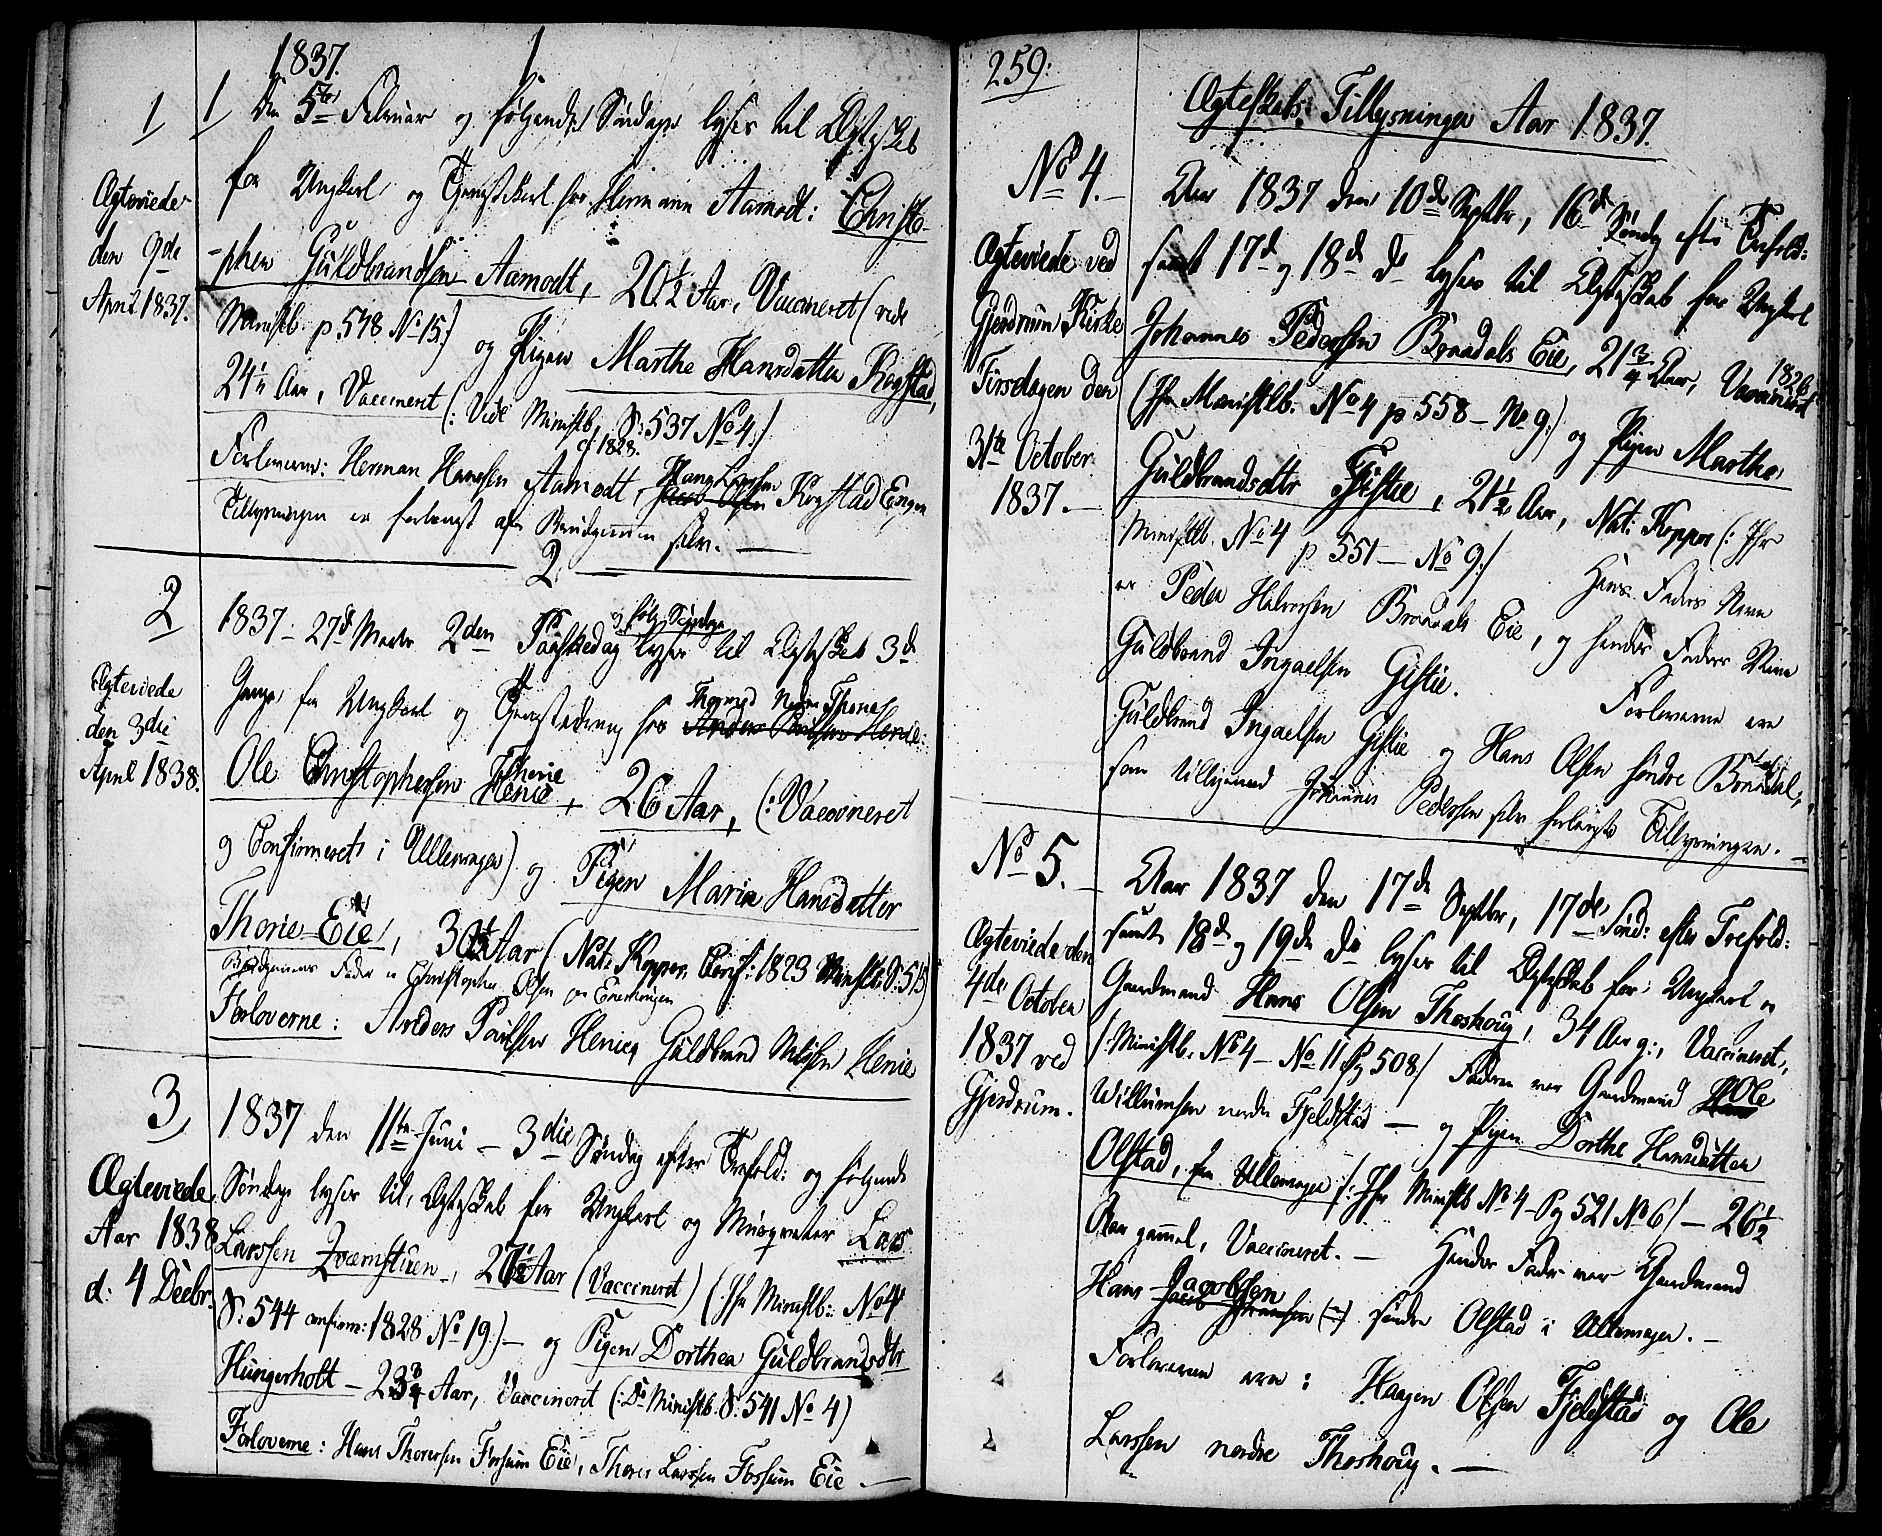 1837.
1
1
Ægteviede
den 9de
April 1837.
1 Den 5te Februar og følgende Søndage lyses til Ægteskab
for Ungkarl og Tjenestekarl hos Herman Aamodt: Christo-
-pher Guldbrandsen Aamodt, 20 1/2 Aar, Vaccineret (vide
Ministb. p. 548 No 15.) og Pigen Marthe Hansdatter Kogstad,
24 1/2 Aar, Vaccineret (: Vide Ministb. S: 537 No 4./
af 1828.
Forloverne: Herman Hansen Aamodt, Hans Larssen Kogstad Engen
Tillysningen er forlangt af Brudgommen selv. —
2.
2
Ægteviede
den 3die
April 1838.
1837 – 27de Marts 2den Paaskedag og følg. Søndage lyses til Ægteskab 3de
Gange for Ungkarl og Tjenestedreng hos Anders Poulsen Henie:
Ole Christophersen Thorie, 26 Aar, (: Vaccineret
og Confirmeret i Ullensager) og Pigen Maria Hansdatter
Thorie Eie, 30 Aar (Nat: Kopper. Conf: 1823 Ministb: S: 515)
Brudgommens Fader er Christopher Olsen
Forloverne: Anders Poulsen Henie og Guldbrand Nilsen Henie
3
Ægteviede
Aar 1838
d: 4 Decbr.
1837 den 11te Juni – 3die Søndag efter Trefold: og følgende
Søndage lyses til Ægteskab for Ungkarl og Musqueteer Lars
Larssen Qvernstuen, 27 1/2 Aar (Vaccineret) (Jfr Ministb: No 4
S: 544 confirm: 1828 No 19.) – og Pigen Dorthea Guldbrandsdtr
Hungerholt – 23 3/4 Aar, Vaccineret (: Do Ministb. S: 541 No 4)
Forloverne: Hans Thoresen Fossum Eie, Thores Larssen Fossum Eie. —
259.
Ægteskabs: Tillysninger Aar 1837.
No 4. –
Ægteviede ved
Gjerdrum Kirke
Tirsdagen den
31te October
1837. –
Aar 1837 den 10de Septbr, 16de Søndg efter Trefold:
samt 17de og 18de do lyses til Ægteskab for Ungkarl
Johannes Pedersen Braadals Eie, 21 3/4 Aar, Vaccineret 1826
(Jfr Ministlb. No 4 p 558 – No 9:) og Pigen Marthe
Guldbrandsdtr Gistie, 21 1/2 Aar, Nat: Kopper (: Jfr
Ministlb. No 4 p 551 – No 9:/ Hans Faders Navn
er Peder Halvorsen Braadals Eie, og hendes Faders Navn
Guldbrand Ingaelsen Gistie. Forloverne ere
Guldbrand Ingaelsen Gistie og Hans Olsen søndre Braadal,
som tilligemed Johannes Pedersen selv forlangte Tillysningen. –
No 5. –
Ægteviede den
4de October
1837 ved
Gjerdrum.
Aar 1837 den 17de Septbr, 17de Sønd: efter Trefold:
samt 18de og 19de do lyses til Ægteskab for Ungkarl og
Gaardmand Hans Olsen Thoshoug, 34 Aar g:, Vaccineret,
/: Ministb. No 4 – No 11 Pg 508/ Faderen var Gaardmand Ole
Willumsen nordre Fjeldstad – og Pigen Dorthe Hansdatter
Olstad, fra Ullensager /: Jfr Ministb No 4 – Pg 521 No 6/ – 26 1/2
Aar gammel, Vaccineret. – Hendes Fader var Gaardmand
Hans Jacobsen søndre Olstad i Ullensager. –
Forloverne ere: Haagen Olsen Fjeldstad og Ole
Larssen nordre Thoshoug. —